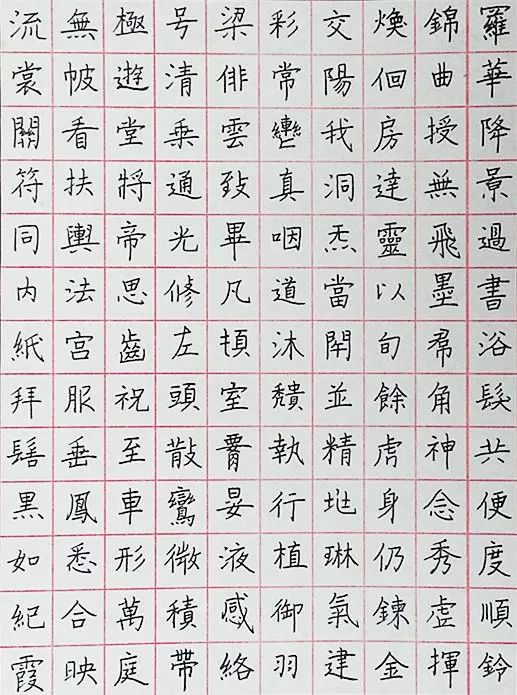 流無極号梁彩交煥錦羅
裳帔遊清俳常陽佪曲華
關看堂乘雲轡我房授降
符扶將通致真洞達無景
同輿帝光畢咽炁靈飛過
内法思修凡道當以墨書
紙宫齒左頓沐閇旬帬浴
拜服祝頭室穨並餘角髮
髻垂至散執精虎神共
黑鳳車鸞晏行地身念便
如悉形微液植琳仍秀度
紀合萬積感御氣鍊虛順
霞映庭帶絡羽建金揮鈴